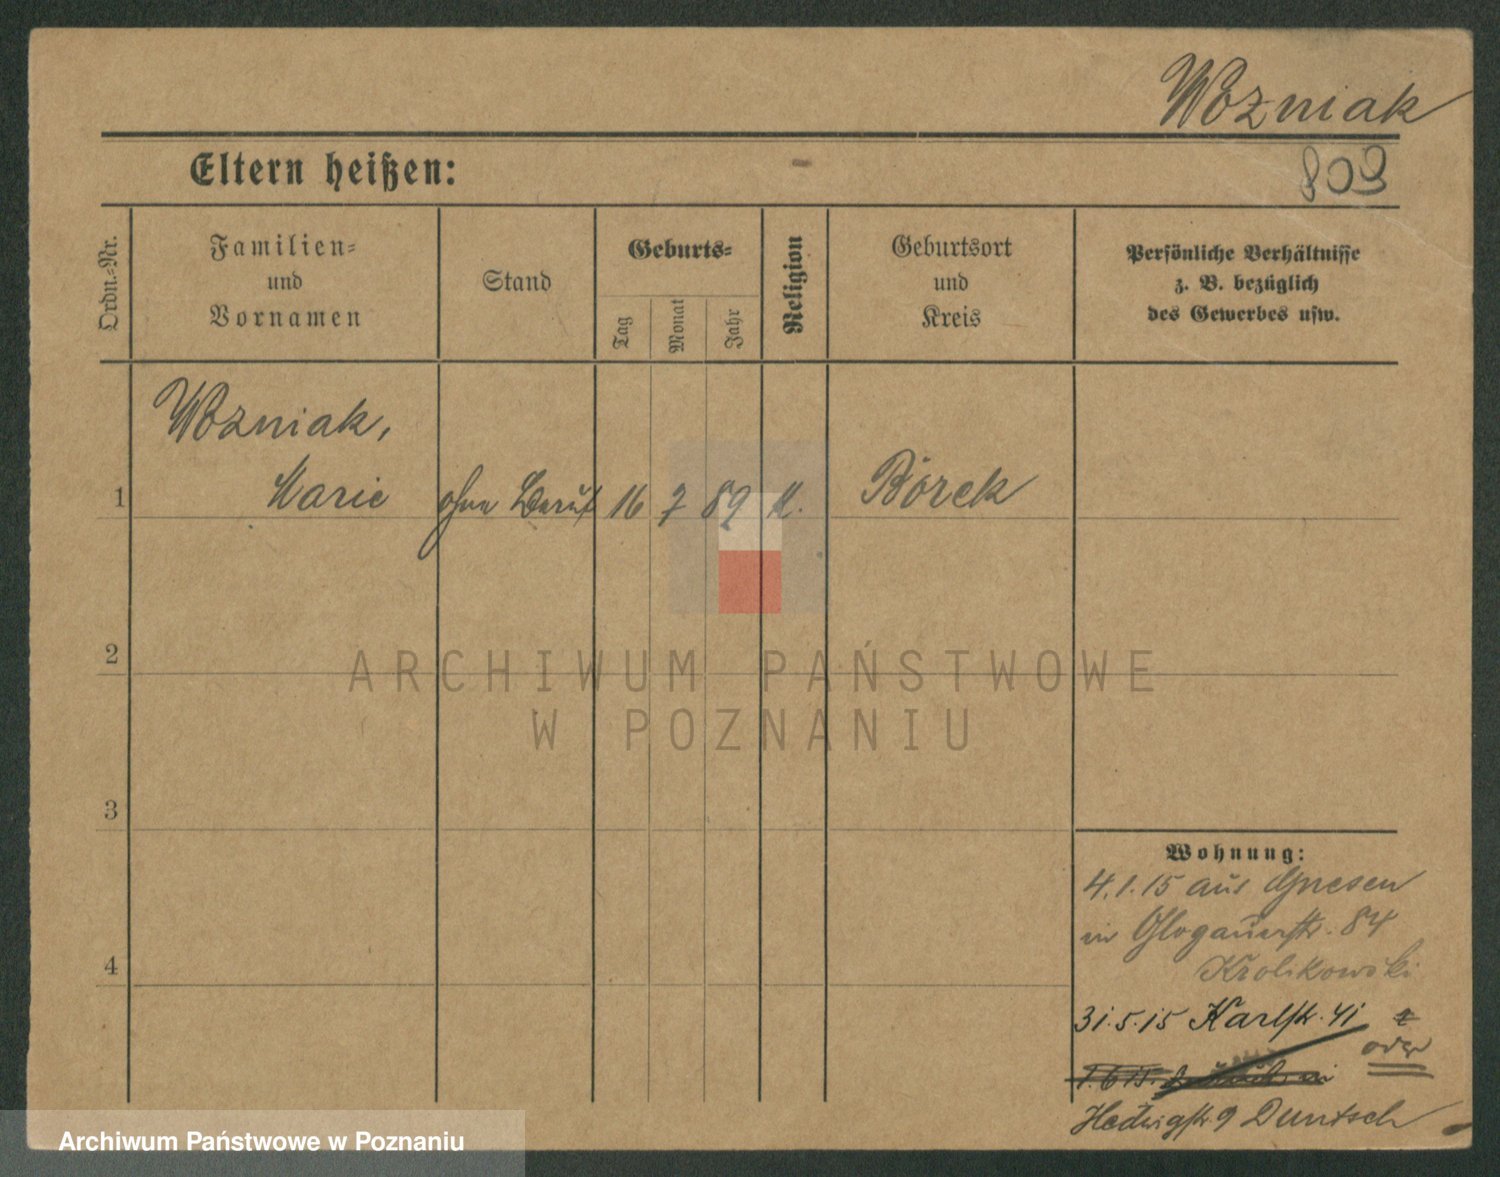 Wozniak
Eltern heißen:
809
Ordn.-Nr.
Familien-
und
Vornamen
Stand
Geburts-
Tag
Monat
Jahr
Religion
Geburtsort
und
Kreis
Persönliche Verhältnisse
z. B. bezüglich
des Gewerbes usw.
Wozniak,
1 Marie ohne Beruf 16 7 89 K. Borek
2
ARCHIWUM PAŃSTWOWE
W POZNANIU
3
4
Wohnung:
4.1.15 aus Gnesen
in Glogauerstr. 84
Krolikowski
31.5.15 Karlstr. 41
oder
1.6.15.
Hedwigstr. 9 Duntsch
Archiwum Państwowe w Poznaniu